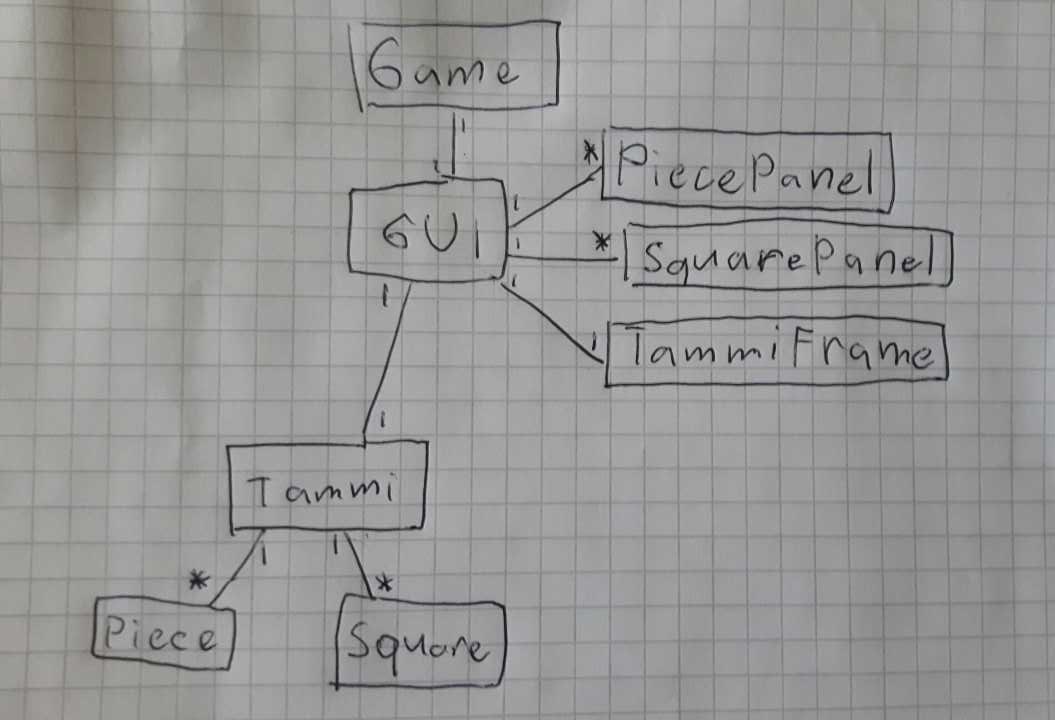 Game
1
1
GUI
* PiecePanel
1
1 * SquarePanel
1
1 TammiFrame
1
1
Tammi
1 1
* *
Piece Square